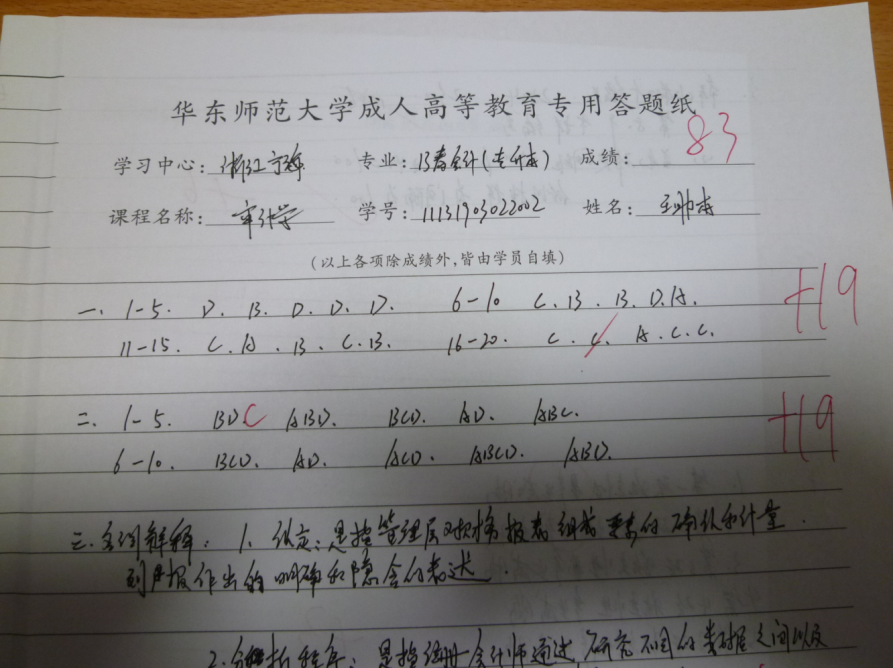 华东师范大学成人高等教育专用答题纸
学习中心: 浙江宁海 专业: 13春会计(专升本) 成绩: 83
课程名称: 审计学 学号: 11131903022002 姓名: 王
(以上各项除成绩外,皆由学员自填)
一、1-5. D. B. D. D. D. 6-10 C. B. B. D. A. +19
11-15. C. A. B. C. B. 16-20. C. C. A. C. C.
二. 1-5. BD C ABD. BCD. AD. ABC. +19
6-10. BCD. AD. ACD. ABCD. ABD.
三.名词解释: 1. 认定:是指管理层对财务报表组成要素的确认和计量.
作出的明确和隐含的表达.
2.分析程序: 是指注册会计师通过研究不同的数据之间以及